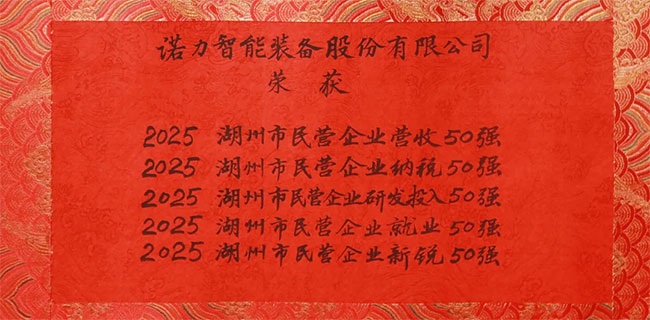 诺力智能装备股份有限公司
荣 获
2025 湖州市民营企业营收50强
2025 湖州市民营企业纳税50强
2025 湖州市民营企业研发投入50强
2025 湖州市民营企业就业50强
2025 湖州市民营企业新锐50强